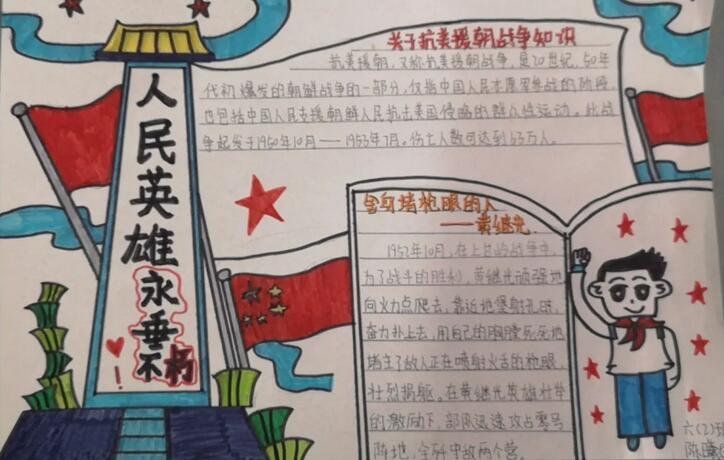 人民英雄永垂不朽!
关于抗美援朝战争知识
抗美援朝,又称抗美援朝战争,是20世纪50年
代初爆发的朝鲜战争的一部分,仅指中国人民志愿军参战的阶段,
也包括中国人民支援朝鲜人民抗击美国侵略的群众性运动。此战
争起发于1950年10月——1953年7月。伤亡人数可达到63万人。
舍身堵枪眼的人
——黄继光
1952年10月,在上甘岭战争中,
为了战斗的胜利,黄继光顽强地
向火力点爬去,靠近地堡射孔时,
奋力扑上去,用自己的胸膛死死地
堵住了敌人正在喷射火舌的枪眼,
壮烈捐躯。在黄继光英雄壮举
的激励下,部队迅速攻占零号
阵地,全歼守敌两个营。
六(2)班
陈